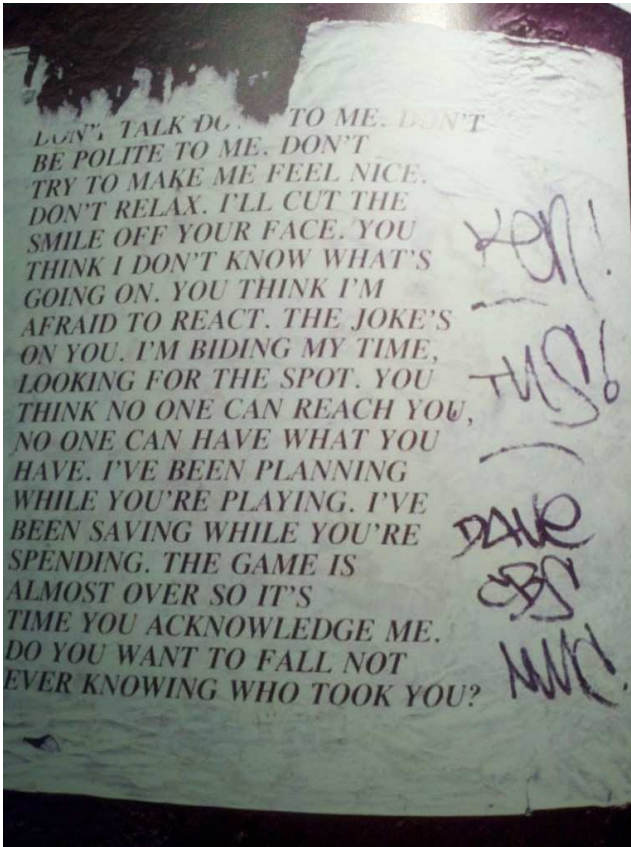 DON'T TALK TO ME. DON'T
BE POLITE TO ME. DON'T
TRY TO MAKE ME FEEL NICE.
DON'T RELAX. I'LL CUT THE
SMILE OFF YOUR FACE. YOU
THINK I DON'T KNOW WHAT'S
GOING ON. YOU THINK I'M
AFRAID TO REACT. THE JOKE'S
ON YOU. I'M BIDING MY TIME,
LOOKING FOR THE SPOT. YOU
THINK NO ONE CAN REACH YOU,
NO ONE CAN HAVE WHAT YOU
HAVE. I'VE BEEN PLANNING
WHILE YOU'RE PLAYING. I'VE
BEEN SAVING WHILE YOU'RE
SPENDING. THE GAME IS
ALMOST OVER SO IT'S
TIME YOU ACKNOWLEDGE ME.
DO YOU WANT TO FALL NOT
EVER KNOWING WHO TOOK YOU?
Ken!
DAVE